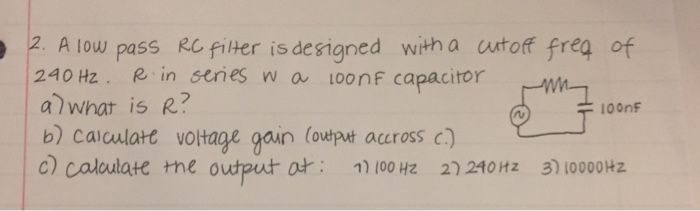 2. A low pass RC filter is designed with a cutoff freq of
240 Hz. R in series w a 100nF capacitor
a) what is R?
100nF
b) calculate voltage gain (output accross c.)
c) calculate the output at: 1) 100 Hz 2) 240 Hz 3) 10000 Hz